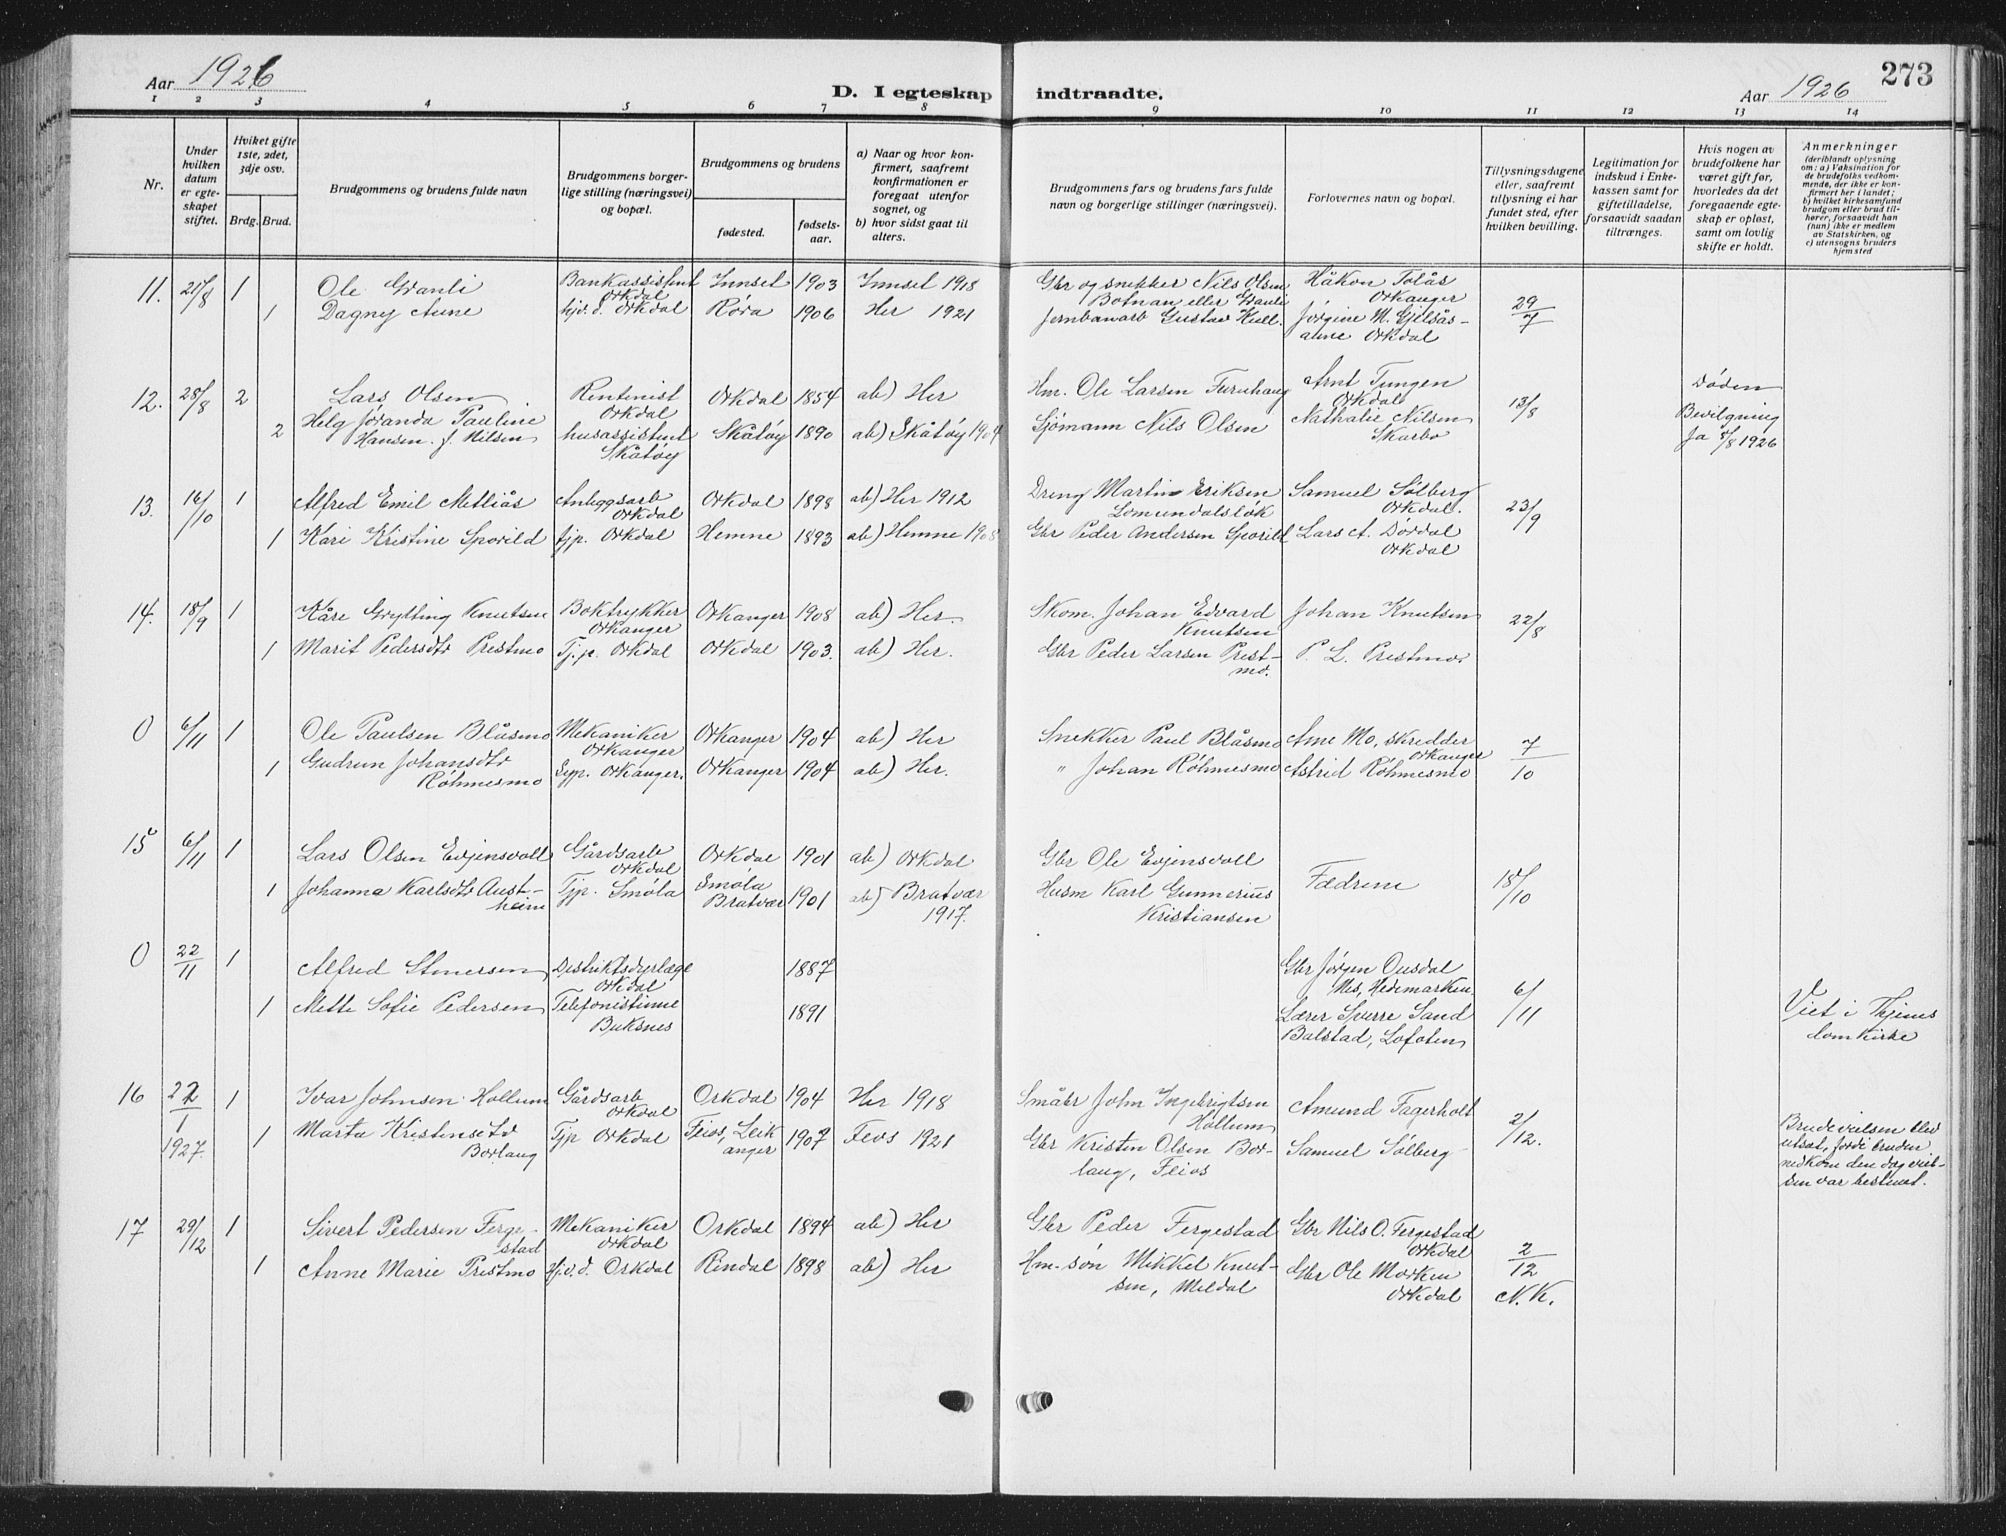 Aar 1926
D. I egteskap indtraadte.
Aar 1926
273
1 2 3 4 5 6 7 8 9 10 11 12 13 14
Nr.
Under hvilken datum er egteskapet stiftet.
Hvilket gifte 1ste, 2det, 3dje osv.
Brdg. Brud.
Brudgommens og brudens fulde navn
Brudgommens borgerlige stilling (næringsvei) og bopæl.
Brudgommens og brudens
fødested.
fødselsaar.
a) Naar og hvor konfirmert, saafremt konfirmationen er foregaat utenfor sognet, og
b) hvor sidst gaat til alters.
Brudgommens fars og brudens fars fulde navn og borgerlige stillinger (næringsvei).
Forlovernes navn og bopæl.
Tillysningsdagene eller, saafremt tillysning ei har fundet sted, efter hvilken bevilling.
Legitimation for indskud i Enkekassen samt for giftetilladelse, forsaavidt saadan tiltrænges.
Hvis nogen av brudefolkene har været gift før, hvorledes da det foregaaende egteskap er opløst, samt om lovlig skifte er holdt.
Anmerkninger
(deriblandt oplysning om: a) Vaksination for de brudefolks vedkommende, der ikke er konfirmert her i landet; b) hvilket kirkesamfund brudgom eller brud tilhører, forsaavidt han (hun) ikke er medlem av Statskirken, og c) utensogns bruders hjemsted
11. 21/8 1 Ole Granli Bankassistent Orkdal Innset 1903 Innset 1918 Gbr og snekker Nils Olsen Botnan eller Granli Håkon Tolås Orkanger 29/7
1 Dagny Aune hjv.d. Orkdal Røra 1906 Her 1921 Jernbanarb Gustav Kull. Jørgine M. Gjelsåsaune Orkdal
12. 28/8 2 Lars Olsen Rentenist Orkdal Orkdal 1854 ab) Her Hm. Ole Larsen Furuhaug Arnt Tungen Orkdal 13/8 Døden
2 Helg Jøranda Pauline Hansen f. Nilsen husassistent Skåtøy Skåtøy 1890 ab) Skåtøy 1904 Sjömann Nils Olsen Nathalie Nilsen Skarbo Bevilgning Ja 5/8 1926
13. 16/10 1 Alfred Emil Metliås Anleggsarb Orkdal Orkdal 1898 ab) Her 1912 Dreng Martin Eriksen Lomundalslok Samuel Sølberg Orkdal. 23/9
1 Kari Kristine Sporild tjp. Orkdal Hemne 1893 ab) Hemne 1908 Gbr Peder Andersen Sporild Lars A. Dørdal Orkdal
14. 18/9 1 Kåre Grytting Knutsen Boktrykker Orkanger Orkanger 1908 ab) Her. Skom. Johan Edvard Knutsen Johan Knutsen 22/8
1 Marit Pedersdtr Prestmo Tj.p. Orkdal Orkdal 1903. ab) Her. Gbr Peder Larsen Prestmo. P. L. Prestmo.
0 6/11 1 Ole Paulsen Blåsmo Mekaniker Orkanger Orkanger 1904 ab) Her Snekker Paul Blåsmo Arne Mo, skredder Orkanger 7/10
1 Gudrun Johansdtr Röhmesmo Syp. Orkanger. Orkanger 1904 ab) Her. " Johan Röhmesmo Astrid Röhmesmo
15 6/11 1 Lars Olsen Evjensvoll Gårdsarb Orkdal Orkdal 1901 ab) Orkdal Gbr Ole Evjensvoll Fædrene 18/10
1 Johanna Karlsdtr Austheim Tjp. Smøla Smøla Bratvær 1901 ab) Bratvær 1917. Husm Karl Gunnerius Kristiansen
0 22/11 1 Alfred Simersen Distriktsdyrlæge Orkdal 1887 Gbr Jörgen Ousdal Nes, Hedemarken 6/11
1 Mette Sofie Pedersen Telefonistinne Buksnes 1891 Lærer Sverre Sand Balstad, Lofoten Viet i Thjems domkirke
16 22/1 1927. 1 Ivar Johnsen Hollum Gårdsarb Orkdal Orkdal 1904 Her 1918 Småbr John Ingebrigtsen Hollum Amund Fagerholt 2/12.
1 Marta Kristensdtr Borlaug Tjp Orkdal Feios, Leikanger 1907 Feos 1921 Gbr Kristen Olsen Borlaug, Feios Samuel Sölberg Brudevielsen blev utsat, fordi bruden nedkom den dag vielsen var bestemt.
17 29/12 1 Sivert Pedersen Fergestad Mekaniker Orkdal Orkdal 1894 ab) Her Gbr Peder Fergestad Gbr Nils O. Fergestad Orkdal 2/12 N.K.
1 Anne Marie Prestmo Hj.v.d. Orkdal Rindal 1898 ab) Her Hm. søn Mikkel Knutsen, Meldal Gbr Ole Morken Orkdal